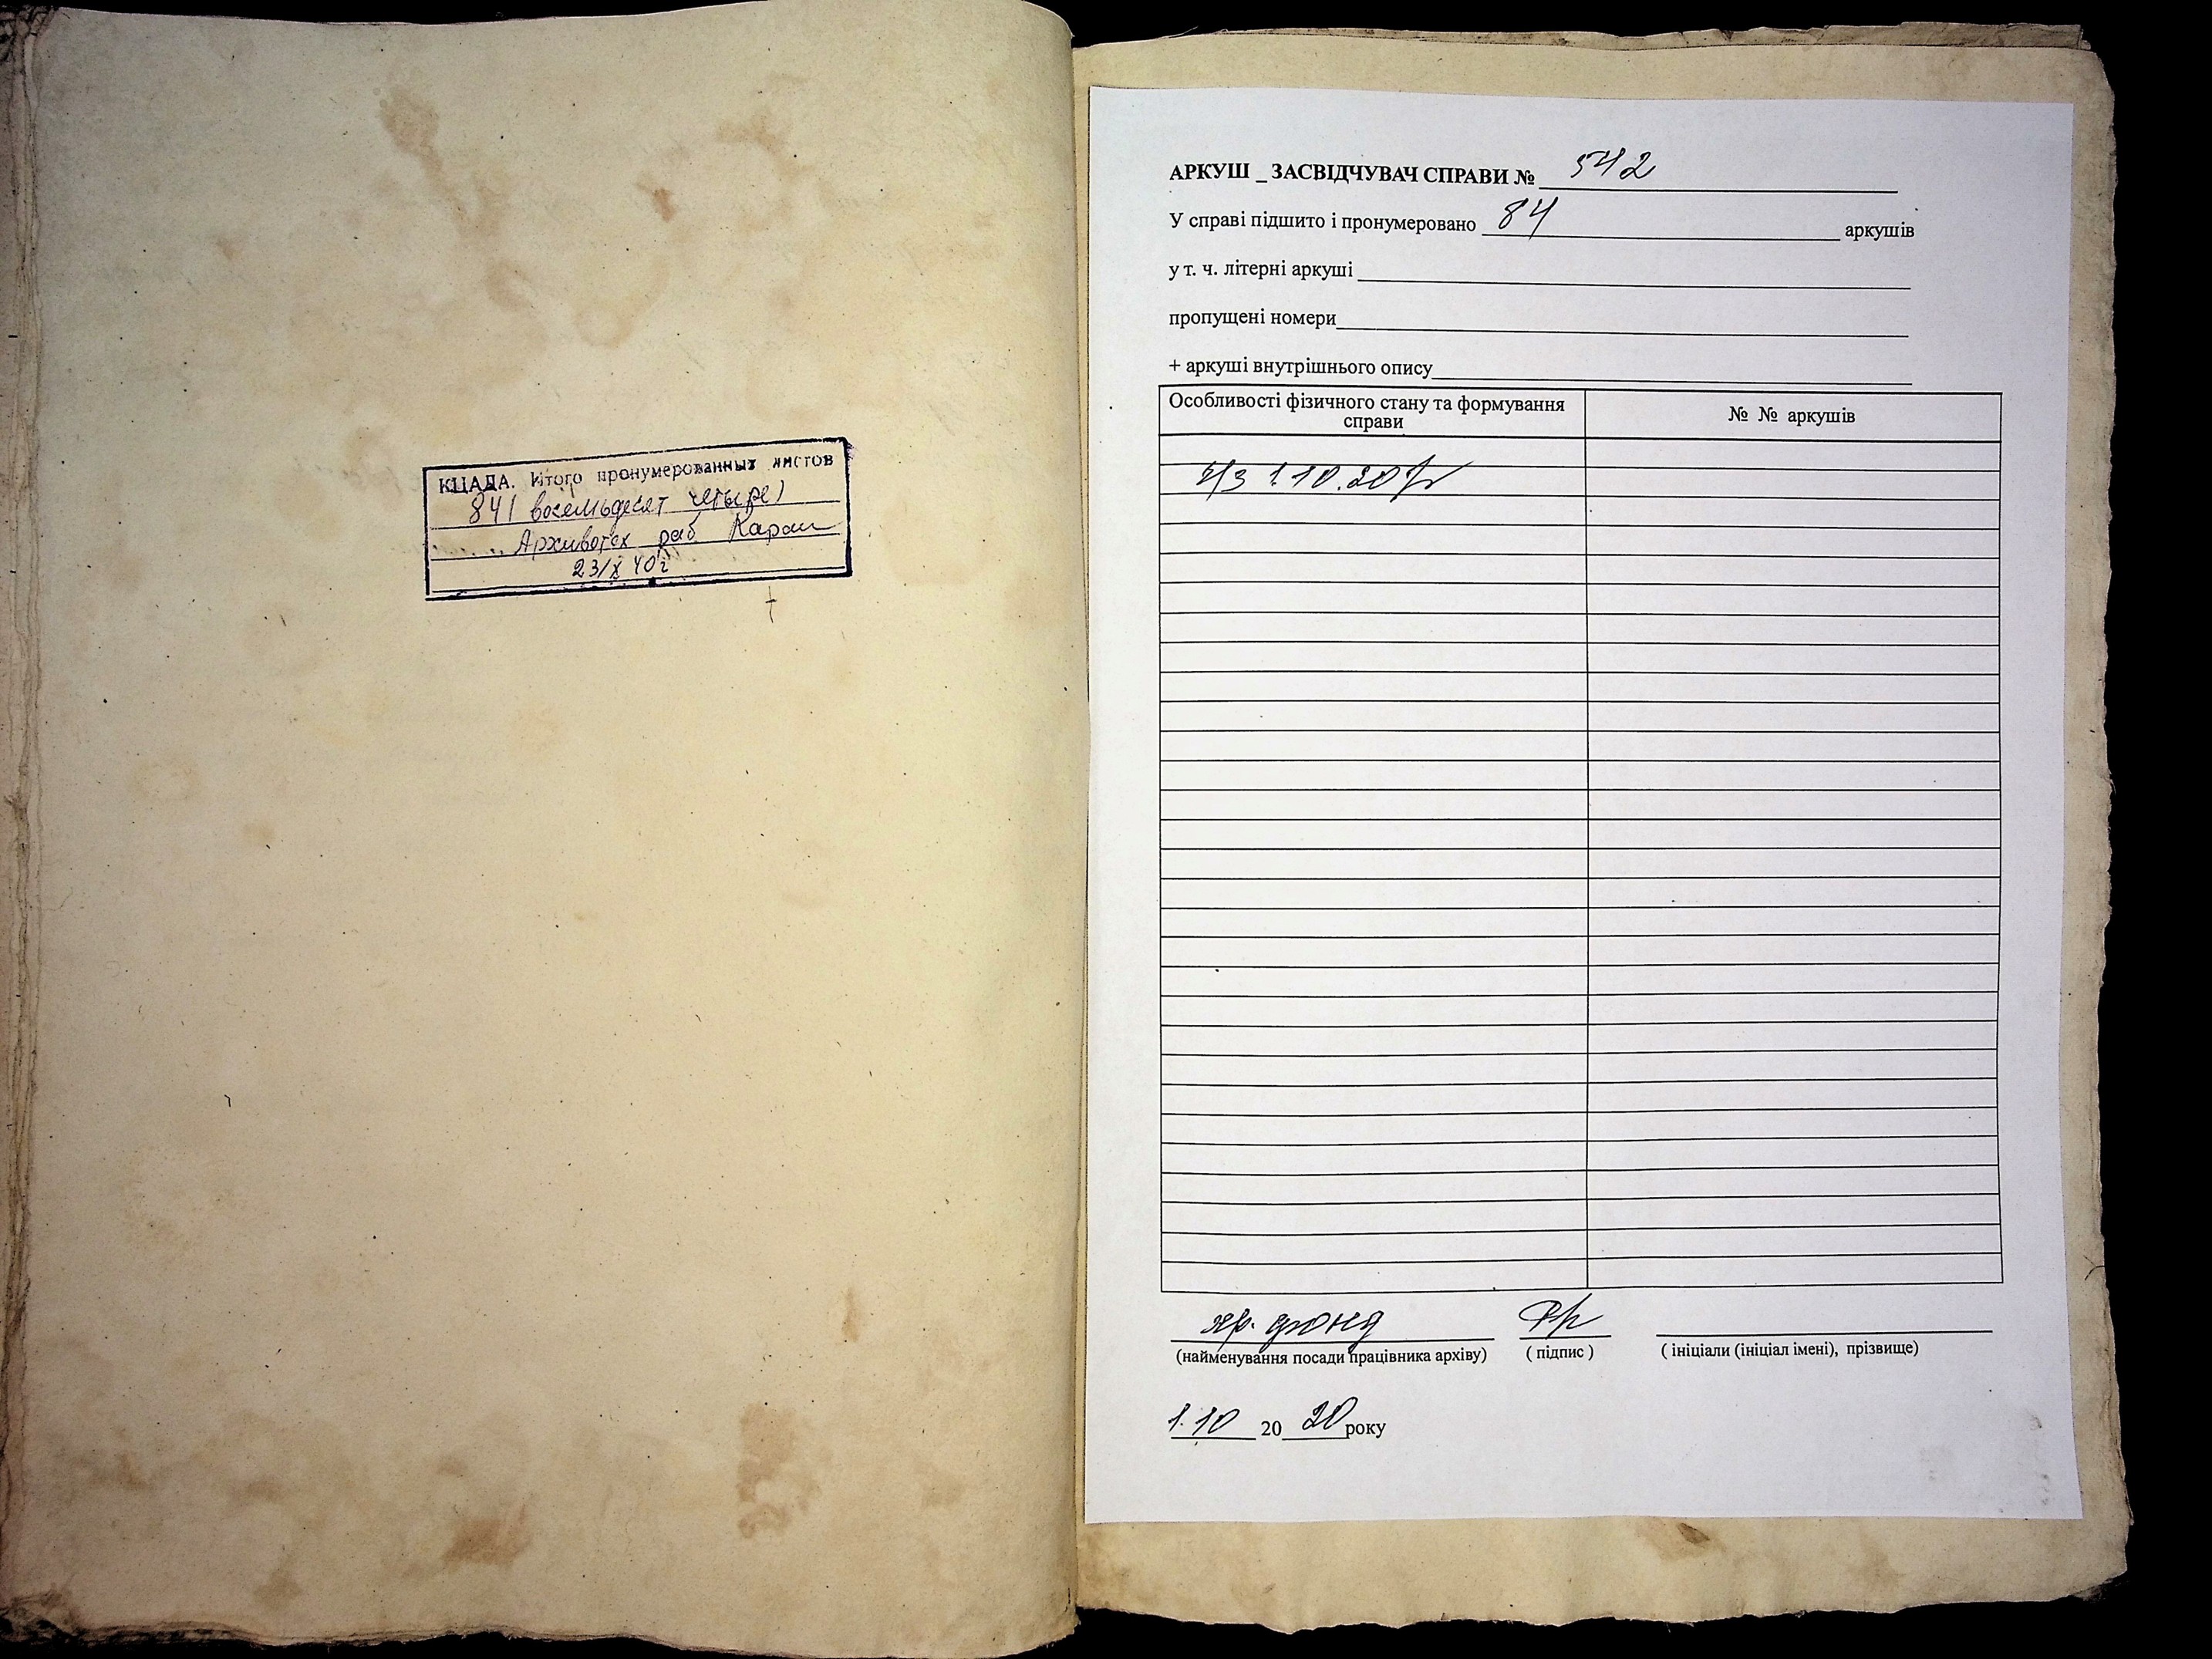 КЦАДА. Итого пронумерованных листов
84 (восемьдесят четыре)
Архивотех раб
23/X 40 г
АРКУШ _ ЗАСВІДЧУВАЧ СПРАВИ № 542
У справі підшито і пронумеровано 84 аркушів
у т. ч. літерні аркуші
пропущені номери
+ аркуші внутрішнього опису
Особливості фізичного стану та формування справи
№ № аркушів
1.10.20
фонд
(найменування посади працівника архіву) ( підпис ) ( ініціали (ініціал імені), прізвище)
1.10 20 20 року